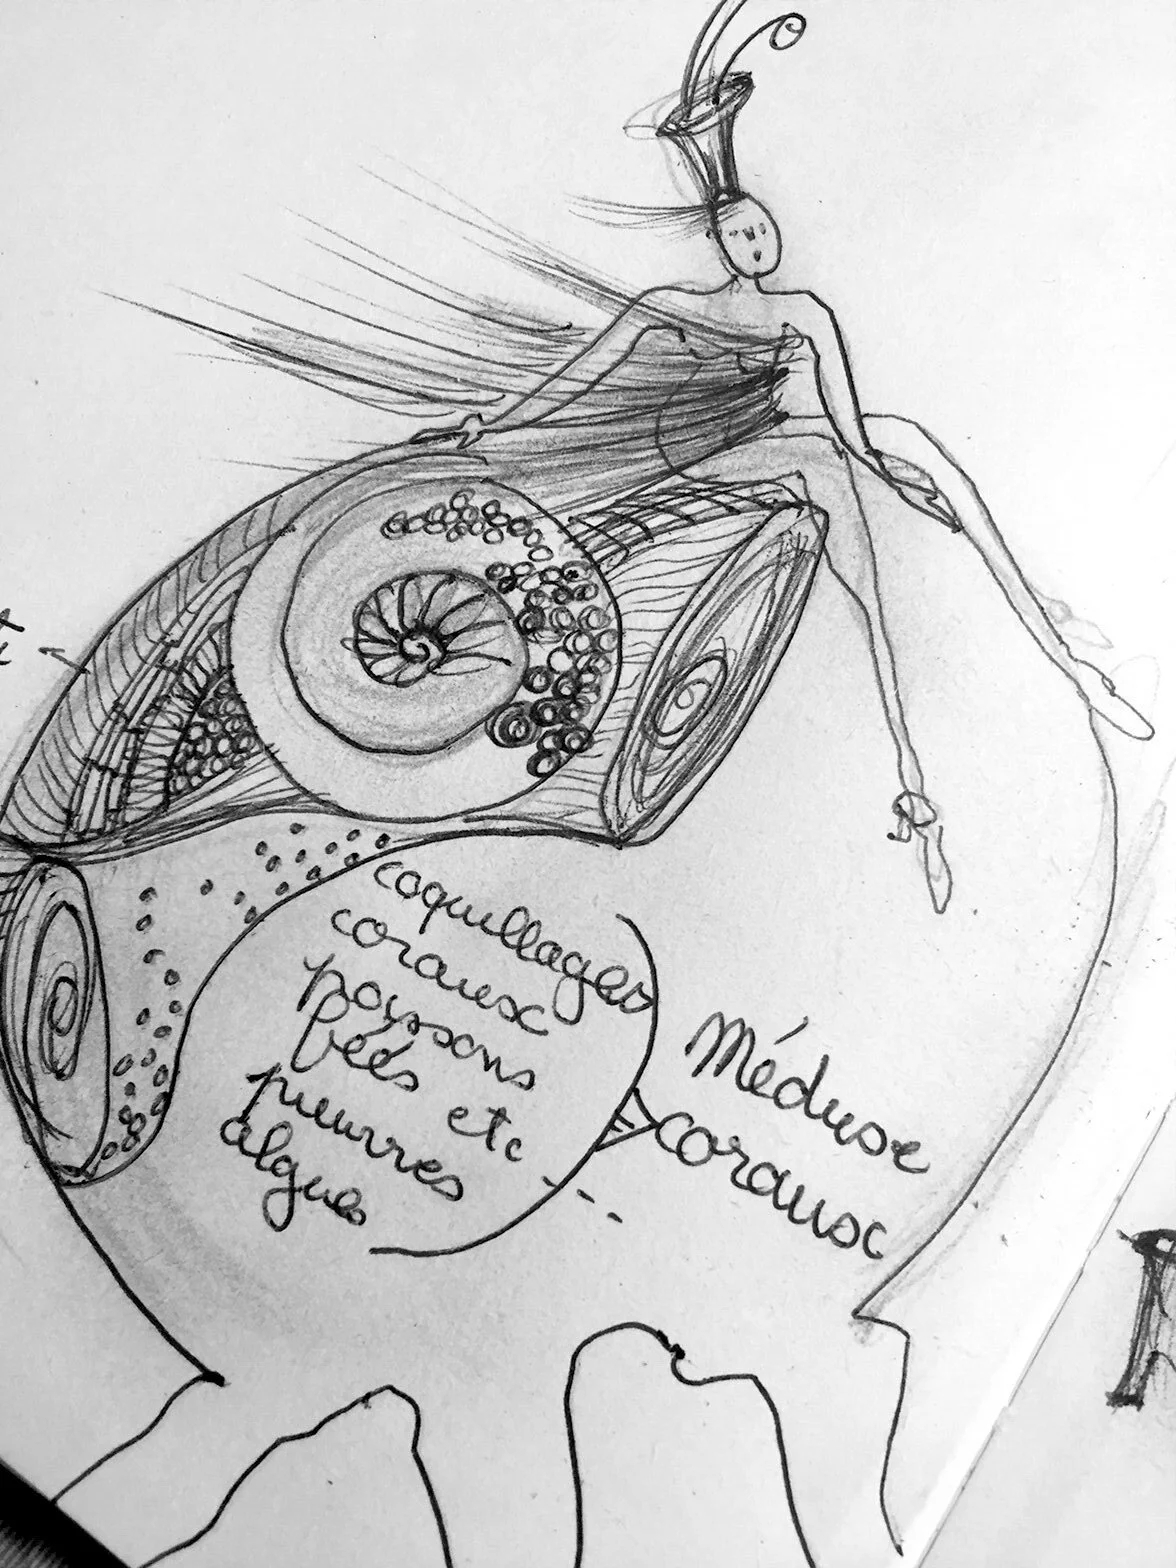 coquillages
coraux
poissons
fées etc
pieuvres
algues
Méduse
coraux